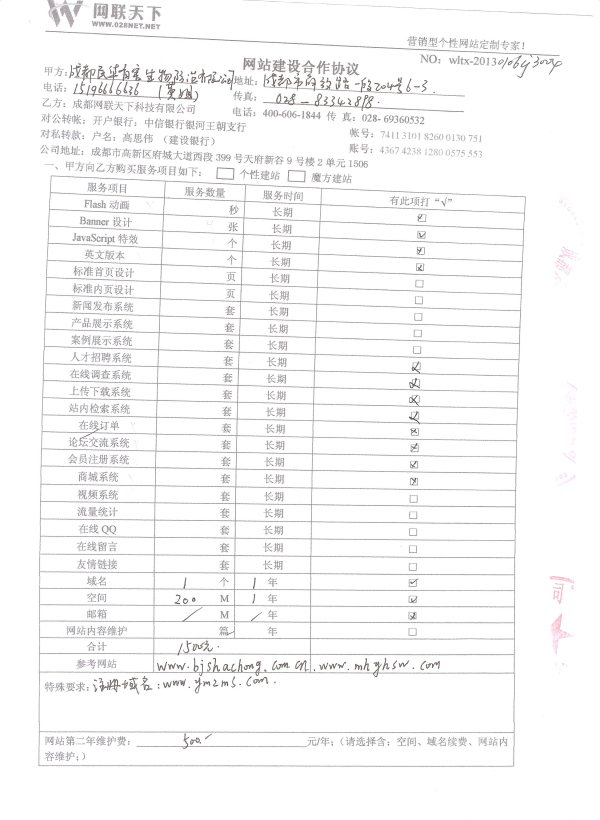 网联天下
WWW.028NET.NET
营销型个性网站定制专家！
网站建设合作协议
NO：wltx-2013
甲方：成都 有害生物防治有限公司 地址：成都市 路一段204号6-3.
电话：15196666636 （ 姐） 传真：028-83342898.
乙方：成都网联天下科技有限公司 电话：400-606-1844 传 真：028- 69360532
对公转帐：开户银行：中信银行银河王朝支行 账号：7411 3101 8260 0130 751
对私转款：户名：高思伟 （建设银行） 账号：4367 4238 1280 0575 553
公司地址：成都市高新区府城大道西段 399 号天府新谷 9 号楼 2 单元 1506
一、甲方向乙方购买服务项目如下： □ 个性建站 □ 魔方建站
服务项目 服务数量 服务时间 有此项打“√”
Flash 动画 秒 长期 ☑
Banner 设计 张 长期 ☑
JavaScript 特效 个 长期 ☑
英文版本 个 长期 ☑
标准首页设计 页 长期 □
标准内页设计 页 长期 □
新闻发布系统 套 长期 □
产品展示系统 套 长期 □
案例展示系统 套 长期 □
人才招聘系统 套 长期 ☑
在线调查系统 套 长期 ☑
上传下载系统 套 长期 ☑
站内检索系统 套 长期 ☑
在线订单 套 长期 ☑
论坛交流系统 套 长期 ☑
会员注册系统 套 长期 ☑
商城系统 套 长期 ☑
视频系统 套 长期 □
流量统计 套 长期 □
在线 QQ 套 长期 □
在线留言 套 长期 □
友情链接 套 长期 □
域名 1 个 1 年 ☑
空间 200 M 1 年 ☑
邮箱 / M / 年 ☑
网站内容维护 篇 年 □
合计 1500元.
参考网站 www.bjshachong.com.cn.www.mhyhsw.com
特殊要求：注册域名：www.ymzms.com.
网站第二年维护费： 500. 元/年；（请选择含：空间、域名续费、网站内
容维护；）
司